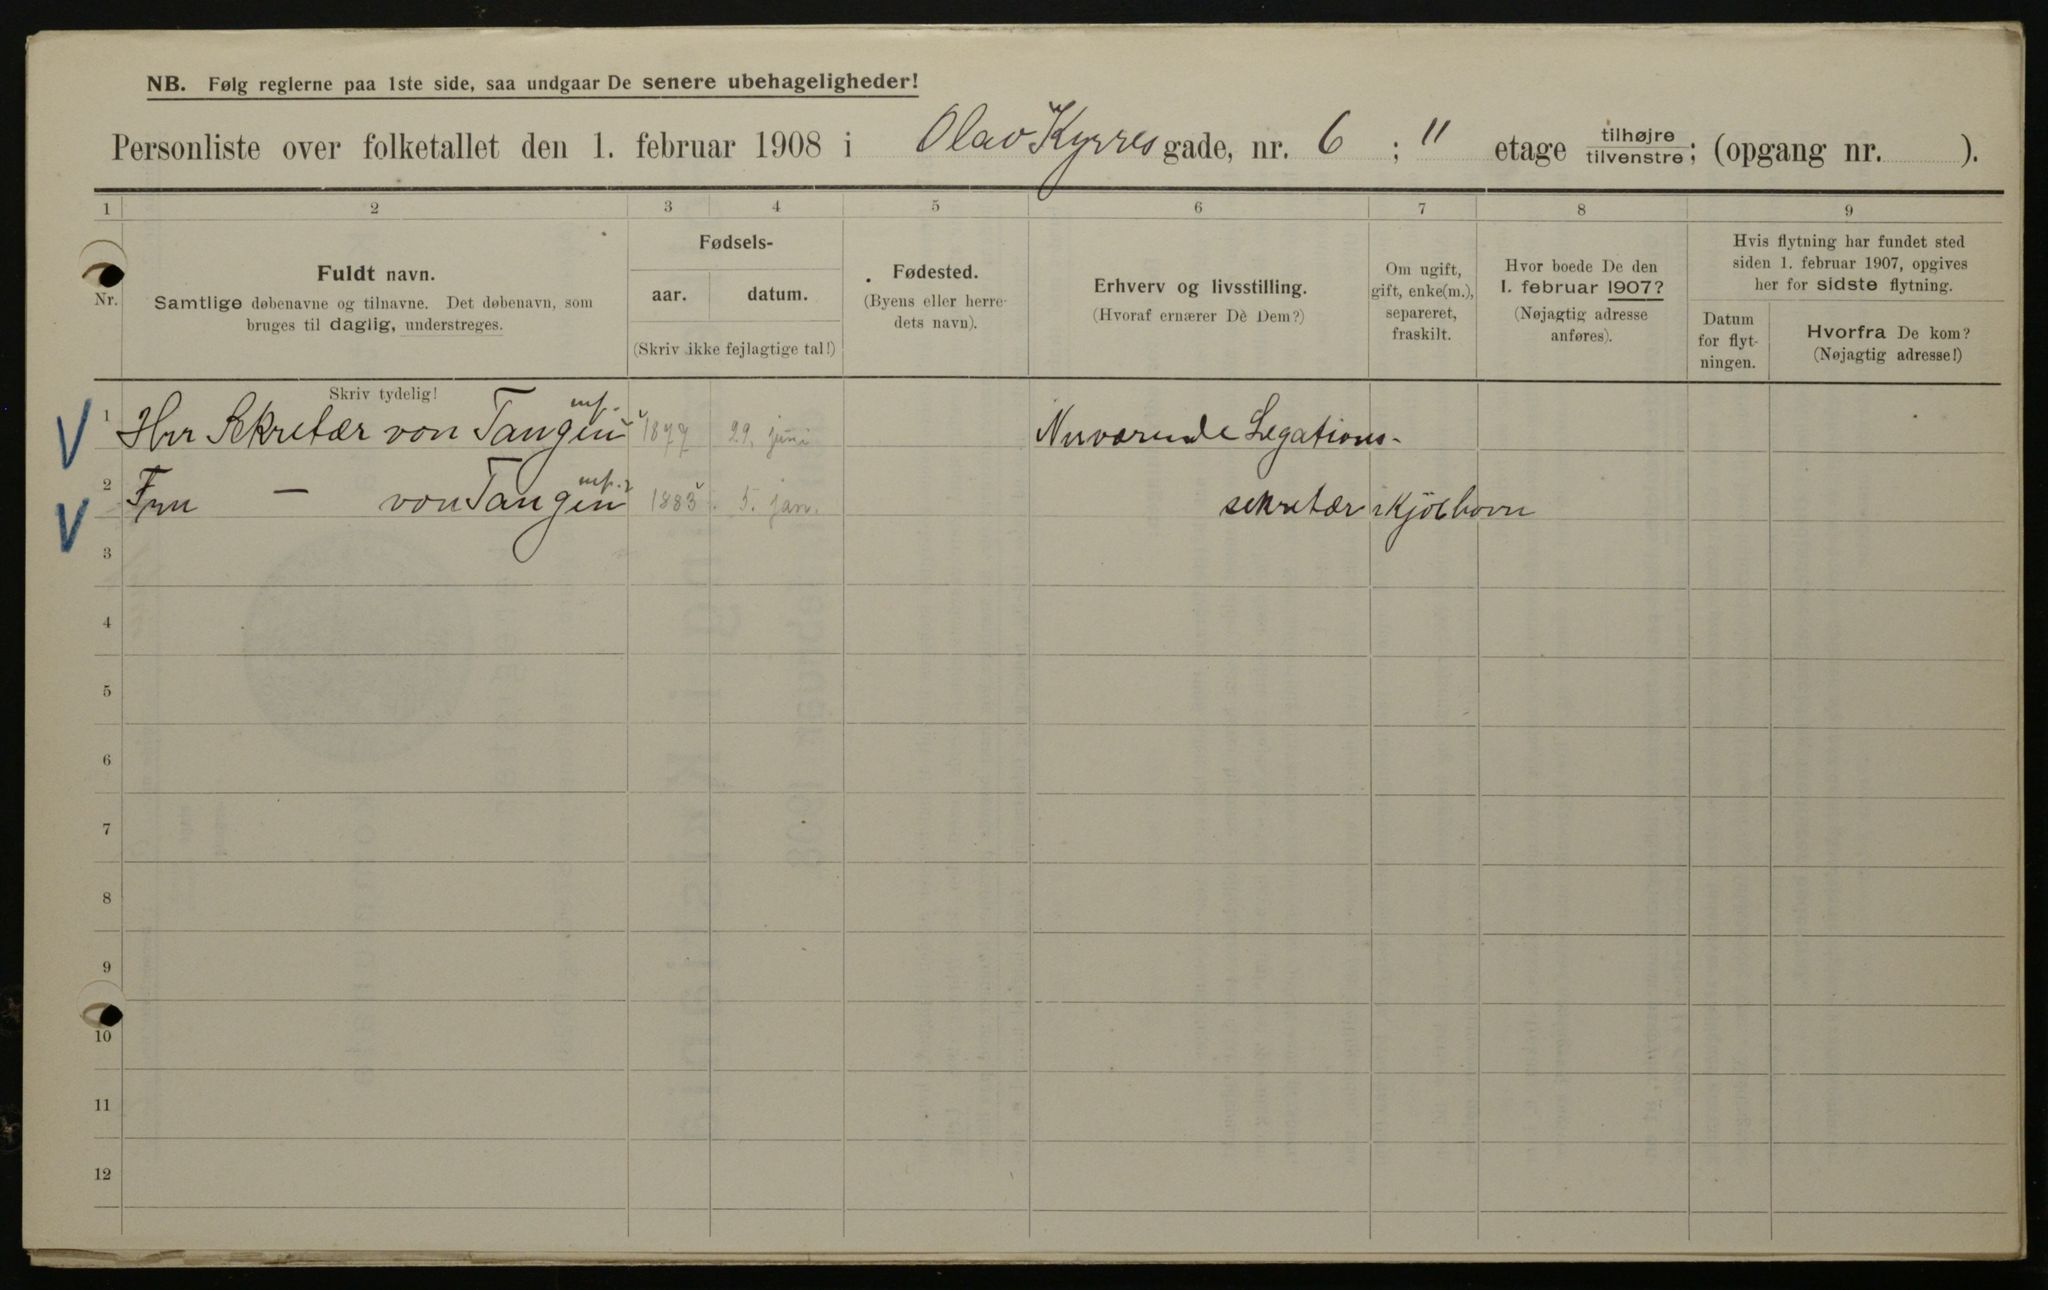 NB. Følg reglerne paa 1ste side, saa undgaar De senere ubehageligheder!
Personliste over folketallet den 1. februar 1908 i Olav Kyrres gade, nr. 6 ; " etage tilhøjre / tilvenstre; (opgang nr. ).
1 2 3 4 5 6 7 8 9
Nr.
Fuldt navn.
Samtlige døbenavne og tilnavne. Det døbenavn, som
bruges til daglig, understreges.
Fødsels-
aar. datum.
(Skriv ikke fejlagtige tal!)
Fødested.
(Byens eller herre-
dets navn).
Erhverv og livsstilling.
(Hvoraf ernærer Dè Dem?)
Om ugift,
gift, enke(m.),
separeret,
fraskilt.
Hvor boede De den
1. februar 1907?
(Nøjagtig adresse
anføres).
Hvis flytning har fundet sted
siden 1. februar 1907, opgives
her for sidste flytning.
Datum
for flyt-
ningen.
Hvorfra De kom?
(Nøjagtig adresse!)
Skriv tydelig!
1 Hrr Sekretær von Tangen 1877 29. juni Nuværende Legations-
2 Fru — von Tangen 1883 5. jan. sekretær i Kjöbhavn
3
4
5
6
7
8
9
10
11
12